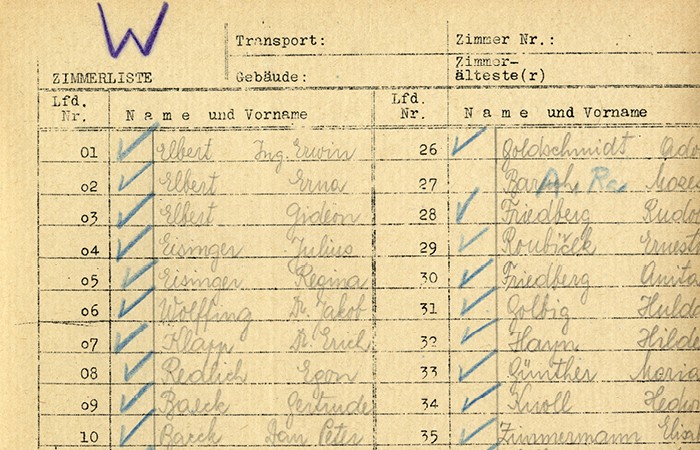 W
Transport: Zimmer Nr.:
ZIMMERLISTE Gebäude: Zimmer-
älteste(r)
Lfd. Nr. Name und Vorname Lfd. Nr. Name und Vorname
01 Elbert Ing. Erwin 26 Goldschmidt Ado
02 Elbert Erna 27
03 Elbert Gideon 28 Friedberg Rud
04 Eisinger Julius 29 Roubiček Ernest
05 Eisinger Regina 30 Friedberg Anita
06 Wolffing Dr. Jakob 31 Golbig Huld
07 Klapp Dr. Erich 32 Haym Hilde
08 Redlich Egon 33 Günther Maria
09 Baeck Gertrude 34 Knoll Hedw
10 Baeck Jan Peter 35 Zimmermann Elisa